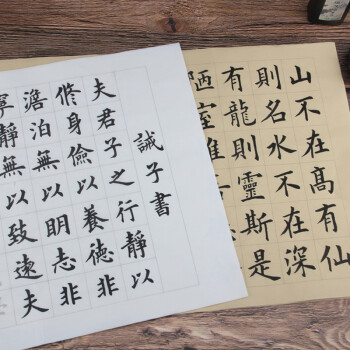 誡子書
夫君子之行靜以
修身儉以養德非
澹泊無以明志非
寧靜無以致遠夫
山不在髙有仙
則名水不在深
有龍則靈斯是
陋室惟吾